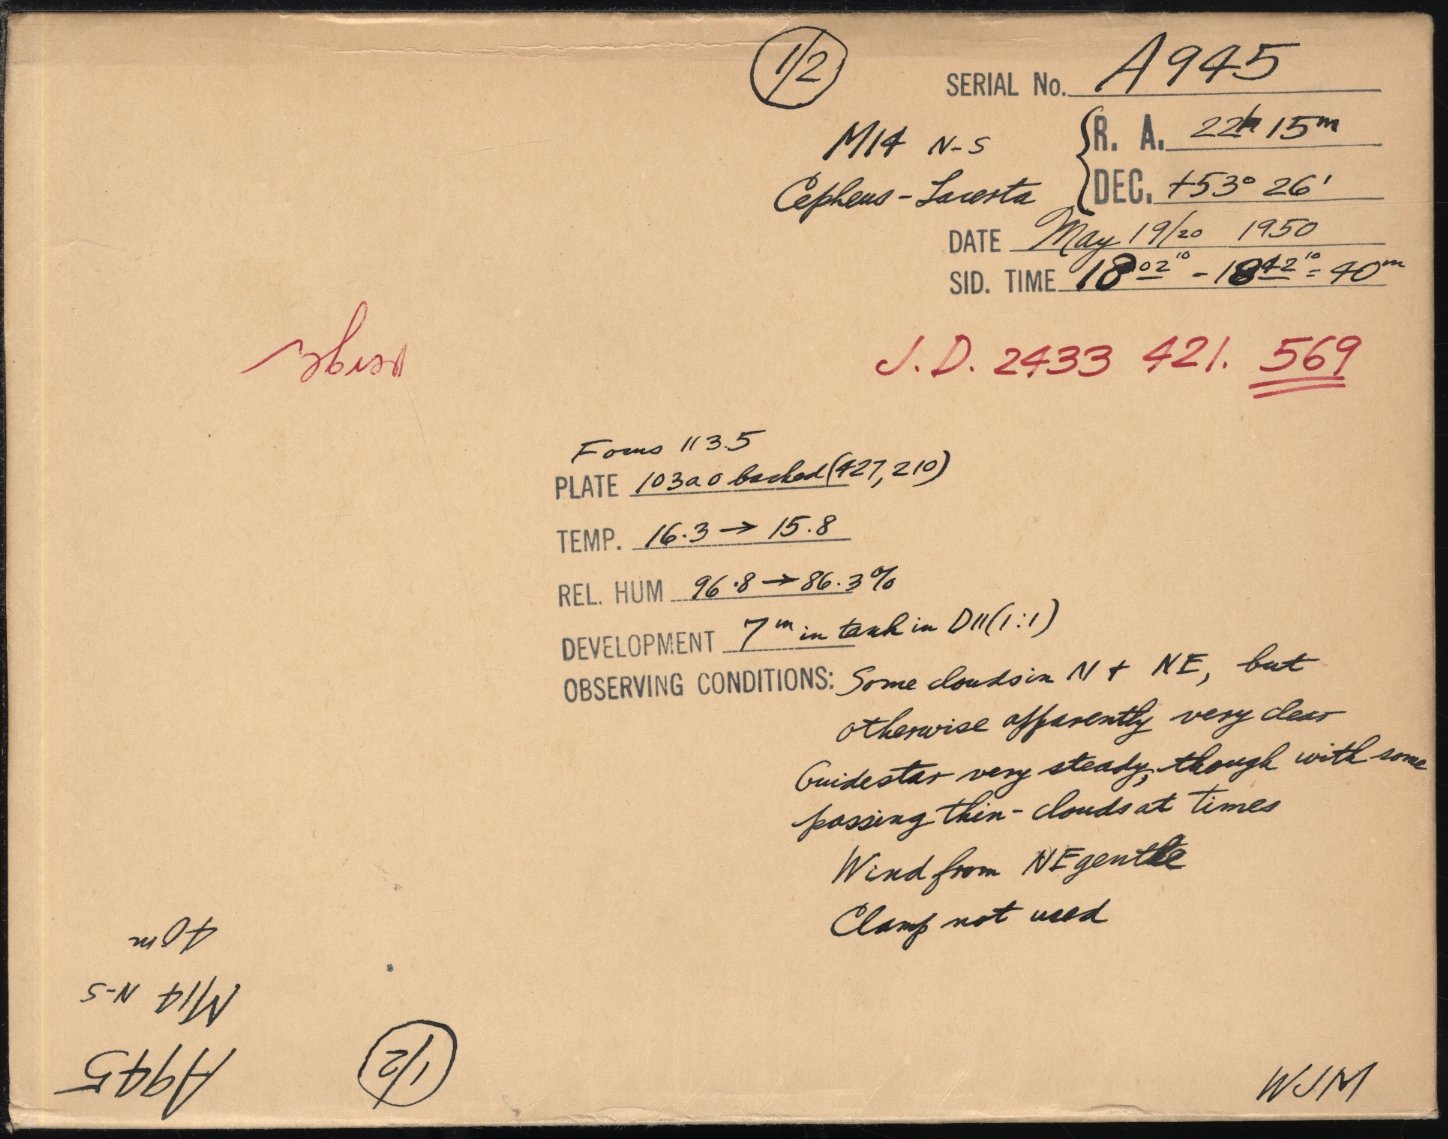 1/2
SERIAL No. A945
M14 N-S
R. A. 22h 15m
Cepheus - Lacerta
DEC. +53° 26'
DATE May 19/20 1950
SID. TIME 18 02 10 - 18 42 10 = 40m
J. D. 2433 421. 569
Focus 113.5
PLATE 103a0 backed (427, 210)
TEMP. 16.3 → 15.8
REL. HUM 96.8 → 86.3%
DEVELOPMENT 7m in tank in D11 (1:1)
OBSERVING CONDITIONS: Some clouds in N + NE, but
otherwise apparently very clear
Guidestar very steady, though with some
passing thin-clouds at times
Wind from NE gentle
Clamp not used
WJM
1/2
A945
M14 N-S
40m